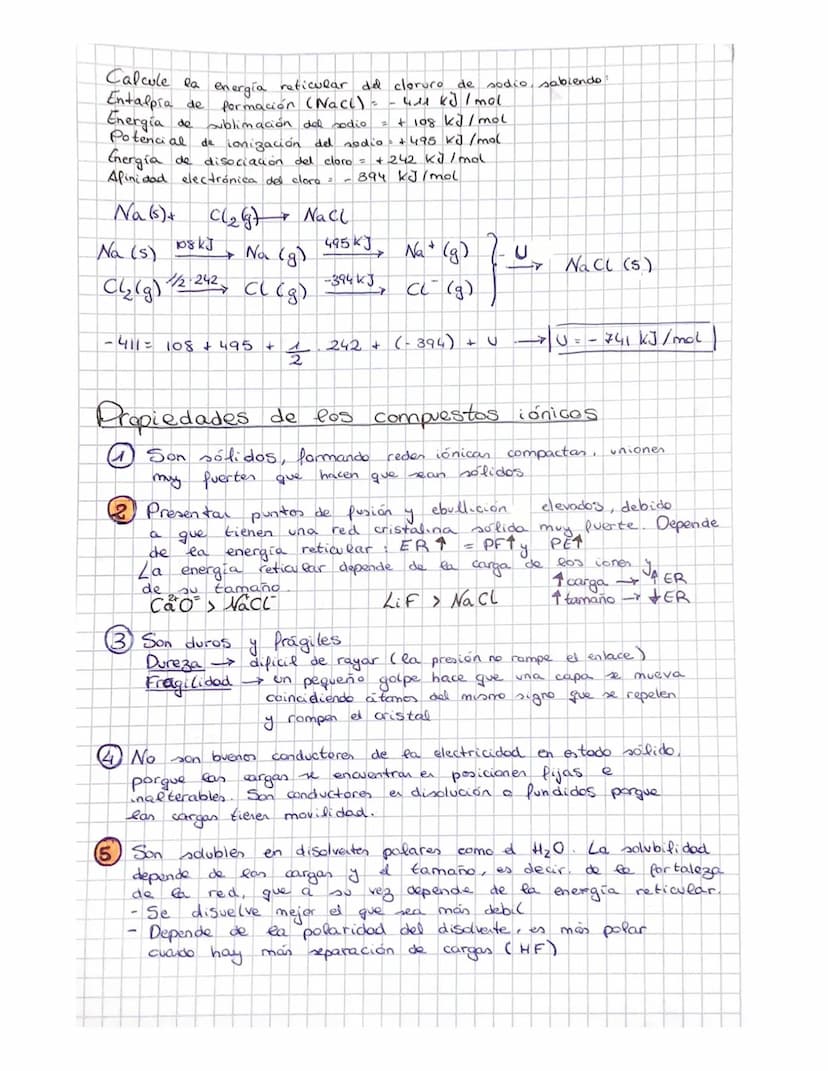 Calcule la energía reticular del cloruro de sodio, sabiendo:
Entalpía de formación (NaCl) = - 411 kJ / mol
Energía de sublimación del sodio = + 108 kJ / mol
Potencial de ionización del sodio = + 495 kJ / mol
Energía de disociación del cloro = + 242 kJ / mol
Afinidad electrónica del cloro = - 394 kJ / mol
Na(s) + Cl₂(g) → NaCl
Na (s) 108 kJ → Na (g) 495 kJ → Na⁺ (g) } - U → NaCl (s)
Cl₂(g) 1/2 · 242 → Cl (g) -394 kJ → Cl⁻ (g)
-411 = 108 + 495 + 1/2 · 242 + (-394) + U → U = - 741 kJ / mol
Propiedades de los compuestos iónicos
① Son sólidos, formando redes iónicas compactas, uniones
muy fuertes que hacen que sean sólidos
② Presentan puntos de fusión y ebullición elevados, debido
a que tienen una red cristalina sólida muy fuerte. Depende
de la energía reticular : ER ↑ = PF↑ y PE↑
La energía reticular depende de la carga de los iones y
de su tamaño
↑ carga → ↑ ER
Ca²⁺O⁼ > Na⁺Cl⁻ LiF > NaCl ↑ tamaño → ↓ ER
③ Son duros y frágiles
Dureza → dificil de rayar (la presión no rompe el enlace)
Fragilidad → un pequeño golpe hace que una capa se mueva
coincidiendo átomos del mismo signo que se repelen
y rompen el cristal
④ No son buenos conductores de la electricidad en estado sólido,
porque las cargas se encuentran en posiciones fijas e
inalterables. Son conductores en disolución o fundidos porque
las cargas tienen movilidad.
⑤ Son solubles en disolventes polares como el H₂O. La solubilidad
depende de las cargas y el tamaño, es decir, de la fortaleza
de la red, que a su vez depende de la energía reticular.
- Se disuelve mejor el que sea más debil
- Depende de la polaridad del disolvente, es más polar
cuando hay más separación de cargas (HF)